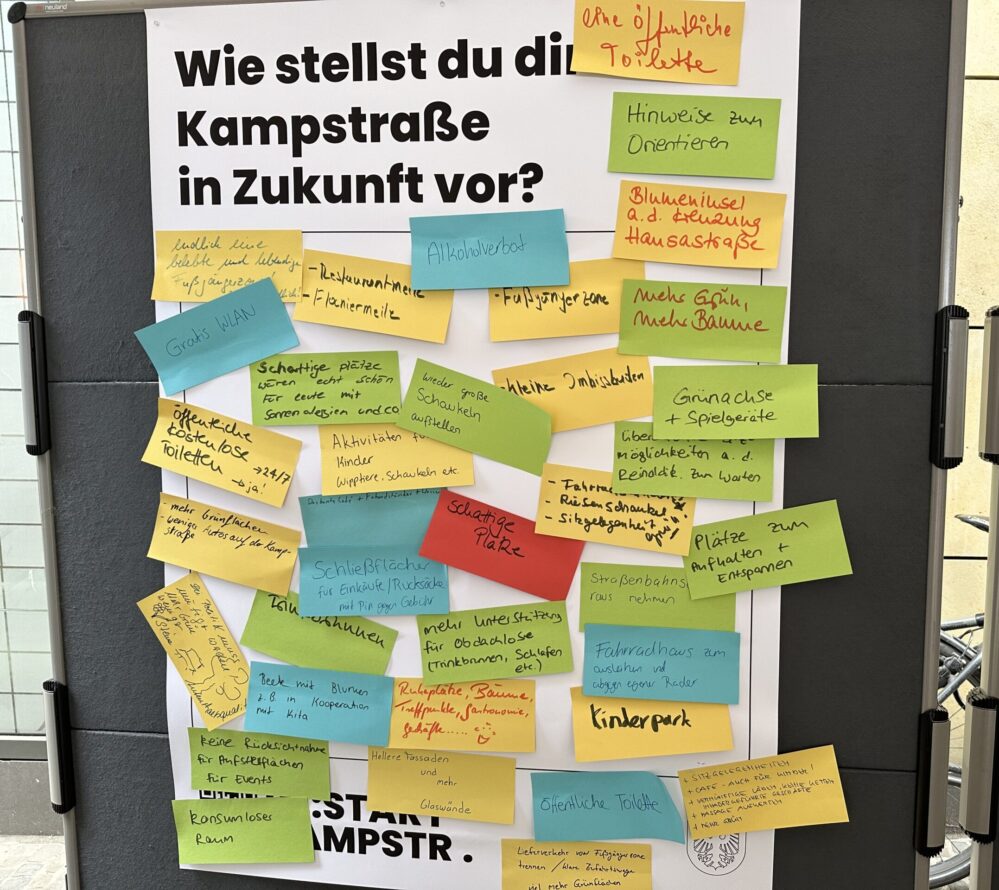 neuland
Wie stellst du
Kampstraße
in Zukunft vor?
eine öffentliche
Toilette
Hinweise zum
Orientieren
Blumeninsel
a.d. Kreuzung
Hansastraße
endlich eine
belebte und lebendige
Fußgängerzone!
- Restaurantmeile
- Flaniermeile
Alkoholverbot
- Fußgängerzone
mehr Grün,
mehr Bäume
Gratis WLAN
Schattige plätze
wären echt schön
für leute mit
und co
wieder große
Schaukeln
aufstellen
kleine Imbissbuden
Grünachse
+ Spielgeräte
öffentliche
kostenlose
Toiletten → 24/7
ja!
Aktivitäten
Kinder
Wipptiere, Schaukeln etc.
möglichkeiten a. d.
Reinoldik. zum Warten
mehr Grünflächen
wenige Autos auf der Kamp-
straße
Schattige
Plätze
- Riesenschaukel
- Sitzgelegenheit
Plätze zum
Aufhalten +
Entspannen
Schließfächer
für Einkäufe/Rucksäcke
mit Pin gegen Gebühr
Straßenbahns
raus nehmen
mehr Unterstützung
für Obdachlose
(Trinkbrunnen, Schlafen
etc.)
Fahrradhaus zum
ausleihen und
eigener Räder
Beete mit Blumen
z.B. in Kooperation
mit Kita
Ruheplätze, Bäume,
Treffpunkte, Gastronomie,
Kinderpark
keine Rücksichtnahme
für Aufstellflächen
für Events
Hellere Fassaden
und
mehr
Glaswände
öffentliche Toilette
+ SITZGELEGENHEITEN
+ CAFÉ - AUCH FÜR
+ MEHR GRÜN
konsumloser
Raum
:START
AMPSTR.
Lieferverkehr von Fußgängerzone
trennen / klare
viel mehr Grünflächen